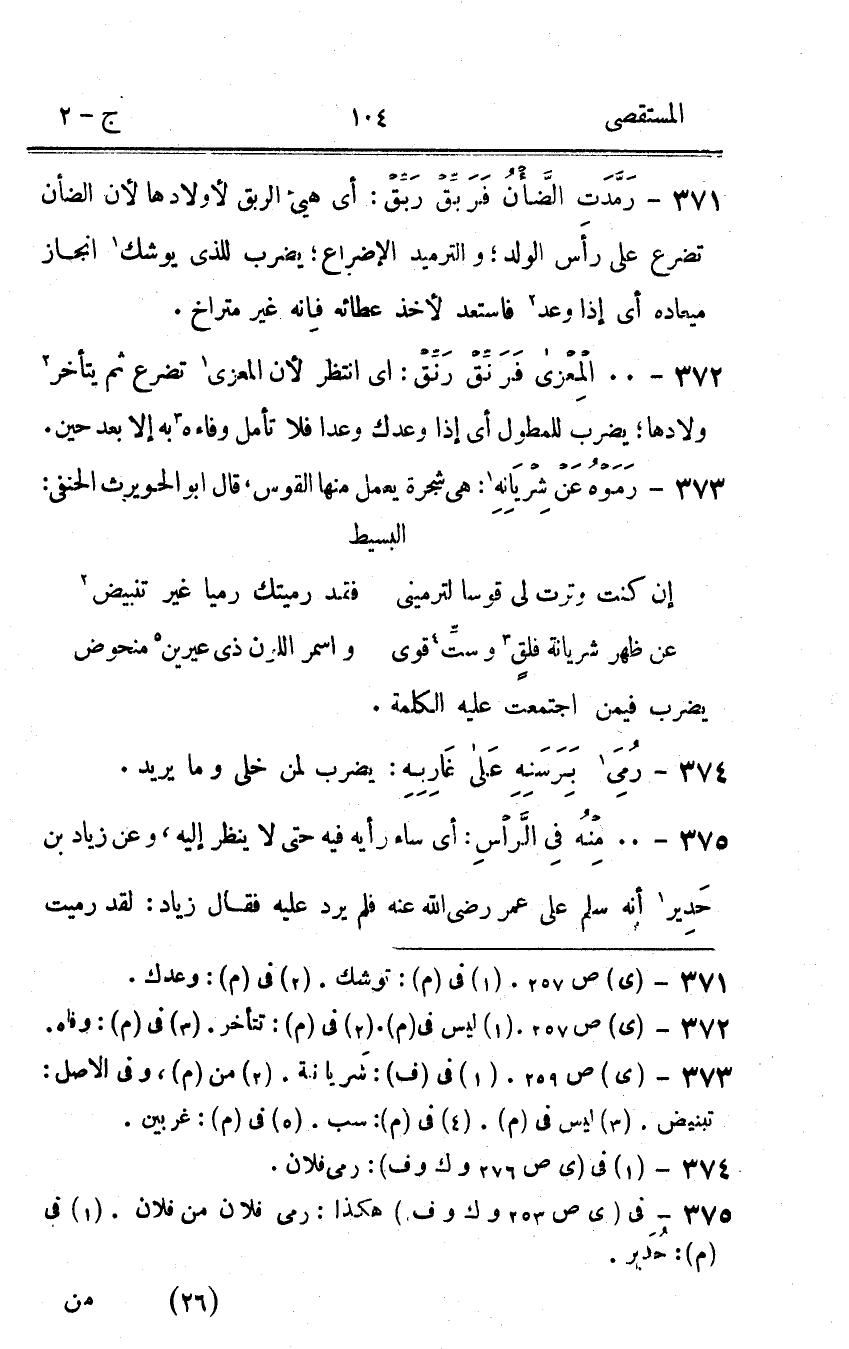 المستقصى ١٠٤ ج – ٢
٣٧١ – رَمَّدَتِ الضَّأْنُ فَرَبِّقْ رَبِّقْ: أى هيئ الربق لأولادها لأن الضأن
تضرع على رأس الولد؛ و الترميد الإضراع؛ يضرب للذى يوشك١ انجـاز
ميعاده أى إذا وعد٢ فاستعد لأخذ عطائه فإنه غير متراخ .
٣٧٢ – ٠٠ الْمِعْزىٰ فَرَنِّقْ رَنِّقْ: اى انتظر لأن المعزى١ تضرع ثم يتأخر٢
ولادها؛ يضرب للمطول أى إذا وعدك وعدا فلا تأمل وفاءه٣ به إلا بعد حين.
٣٧٣ – رَمَوْهُ عَنْ شِرْيَانِهِ١: هى شجرة يعمل منها القوس، قال ابو الحويرث الحنفى:
البسيط
إن كنت وترت لى قوسا لترمينى فقد رميتك رميا غير تنبيض٢
عن ظهر شريانة فلقٍ٣ و ستِّ٤ قوى و اسمر اللون ذى عيرين٥ منحوض
يضرب فيمن اجتمعت عليه الكلمة .
٣٧٤ – رُمِىَ١ بَرَسَنِهِ عَلىٰ غَارِبِهِ: يضرب لمن خلى و ما يريد .
٣٧٥ – ٠٠ مِنْهُ فِى الرَّأْسِ: أى ساء رأيه فيه حتى لا ينظر إليه، و عن زياد بن
حَدِير١ أنه سلم على عمر رضى الله عنه فلم يرد عليه فقـال زياد: لقد رميت
٣٧١ – (ى) ص ٢٥٧ . (١) فى (م): توشك . (٢) فى (م): وعدك .
٣٧٢ – (ى) ص ٢٥٧ .(١) ليس فى(م).(٢) فى (م): تتأخر. (٣) فى (م): وفاه.
٣٧٣ – (ى) ص ٢٥٩ . (١) فى (ف): شَريانة . (٢) من (م)، و فى الاصل:
تبنيض . (٣) ليس فى (م) . (٤) فى (م): سب . (٥) فى (م): غربين .
٣٧٤ – (١) فى (ى ص ٢٧٦ و ك و ف): رمى فلان .
٣٧٥ – فى ( ى ص ٢٥٣ و ك و ف ) هكذا : رمى فلان من فلان . (١) فى
(م): حُدَير .
(٢٦) من